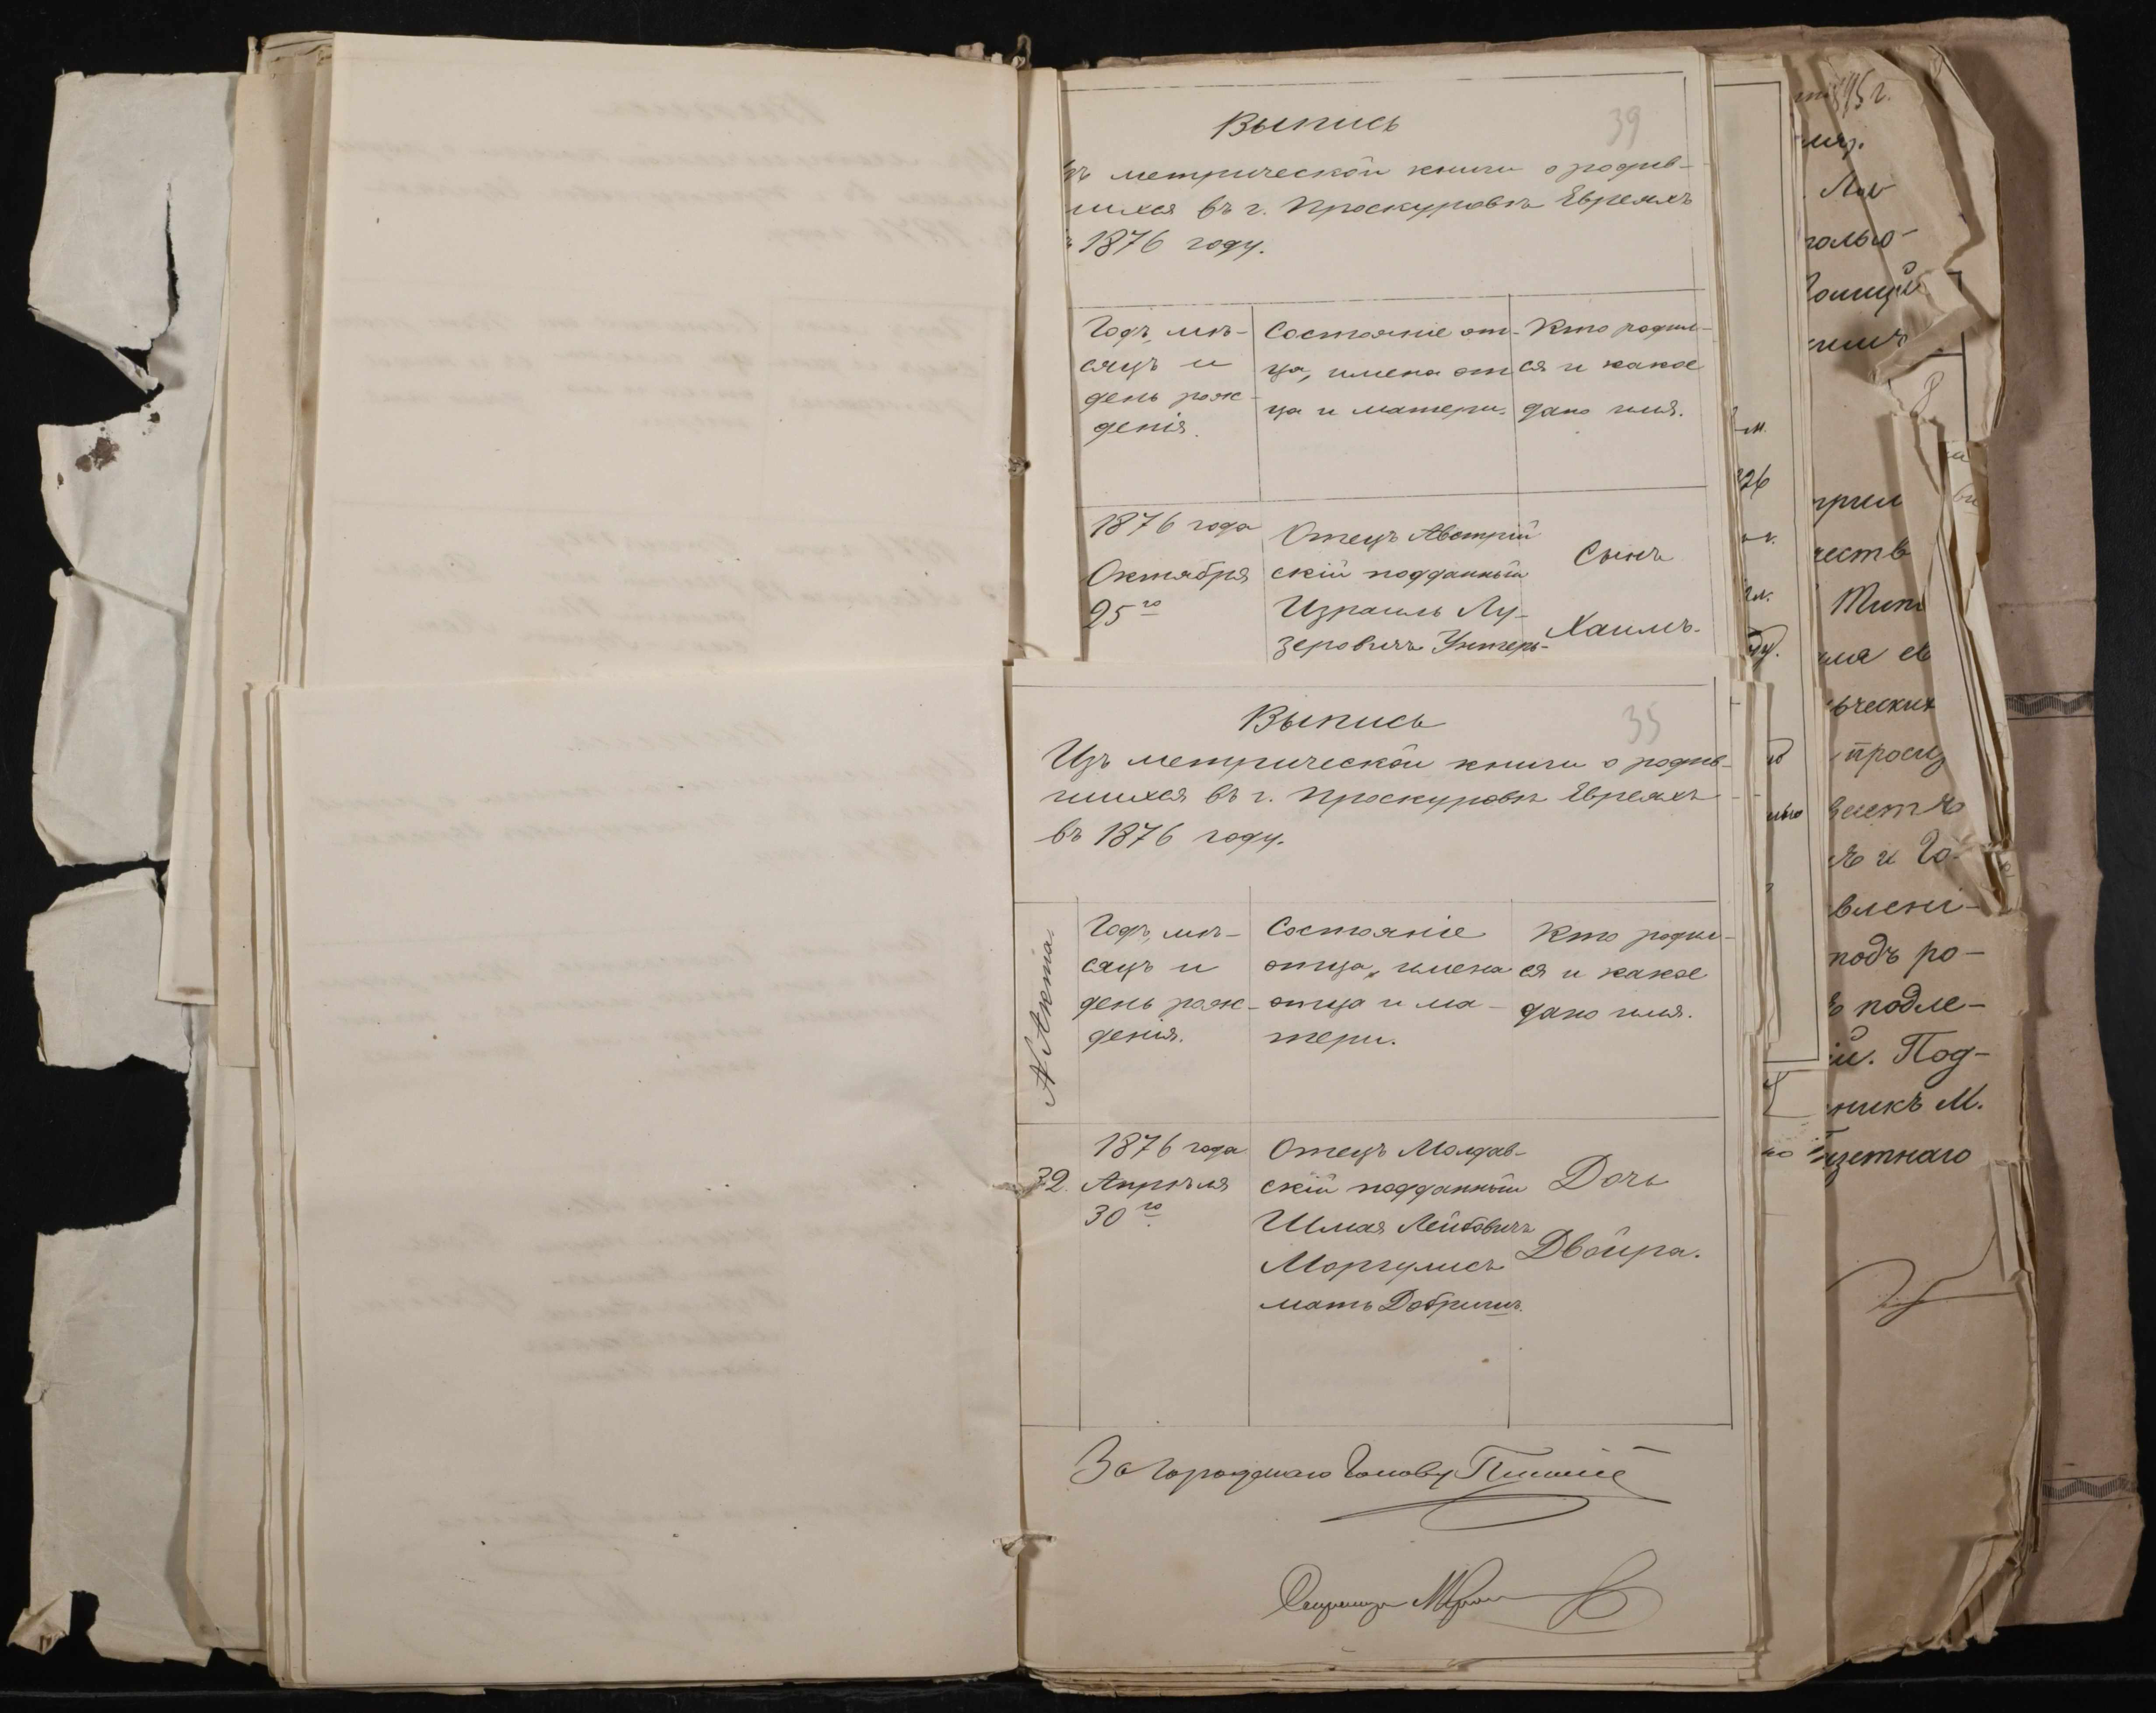 Выпись
39
метрической книги о родив-
шихся въ г. Проскуровѣ Евреяхъ
1876 году.
Годъ, мѣ-
сяцъ и
день рож-
денія.
Состояніе от-
ца, имена от
ца и матери.
Кто родил-
ся и какое
дано имя.
1876 года
Октября
25го
Отецъ Австрій
скій подданный
Израиль Лу-
зеровичъ Унтеръ-
Сынъ
Хаимъ.
Выпись
35
Изъ метрической книги о родив-
шихся въ г. Проскуровѣ Евреяхъ
въ 1876 году.
№ Акта.
Годъ, мѣ-
сяцъ и
день рож-
денія.
Состояніе
отца, имена
отца и ма-
тери.
Кто родил-
ся и какое
дано имя.
32.
1876 года
Апрѣля
30го
Отецъ Молдав-
скій подданный
Шмая Лейбовичъ
Моргулисъ
мать
Дочь
Двойра.
За Городскаго Голову
26
честв
просиз
влені-
подъ ро-
подле-
Под-
никъ М.